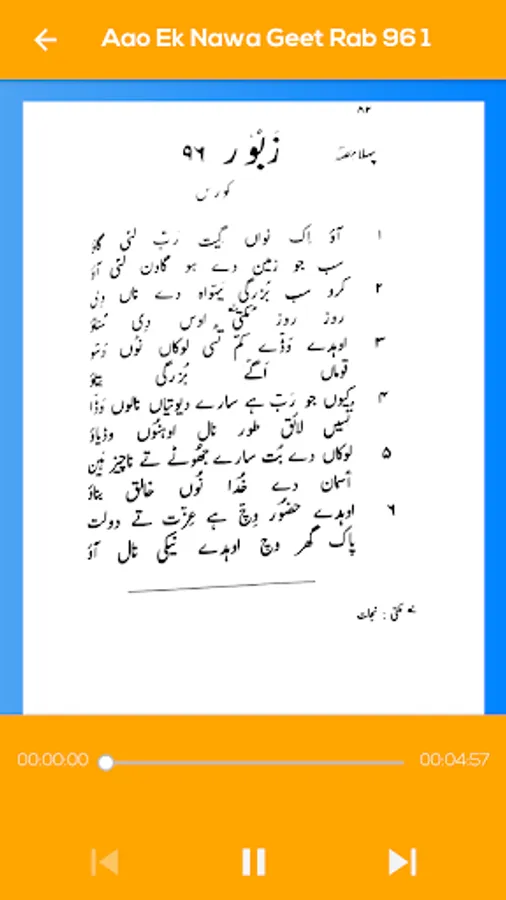 Aao Ek Nawa Geet Rab 96 1
۸۲
پہلا حصّہ
زبُوْر ۹۶
کورس
۱ آؤ اِک نواں گیت رَبّ لئی گاؤ
سب جو زمین دے ہو گاون لئی آؤ
۲ کرو سب بُزرگی یَہواہ دے ناں دِی
روز روز مُکتی اوس دِی سُناؤ
۳ اوہدے وَڈّے کَم تُسی لوکاں نُوں دَسّو
قوماں اَگّے بُزرگی
۴ کیوں جو رَبّ ہے سارے دیوتیاں نالوں وَڈّا
تُسیں لائق طور نال اوہنُوں وڈیاؤ
۵ لوکاں دے بُت سارے جھُوٹے تے ناچیز نیں
آسمان دے خُدا نُوں خالق بناؤ
۶ اوہدے حضُور وِچّ ہے عِزّت تے دولت
پاک گھر وچ اوہدے نیکی نال آؤ
مکتی : نجات
00:00:00
00:04:57